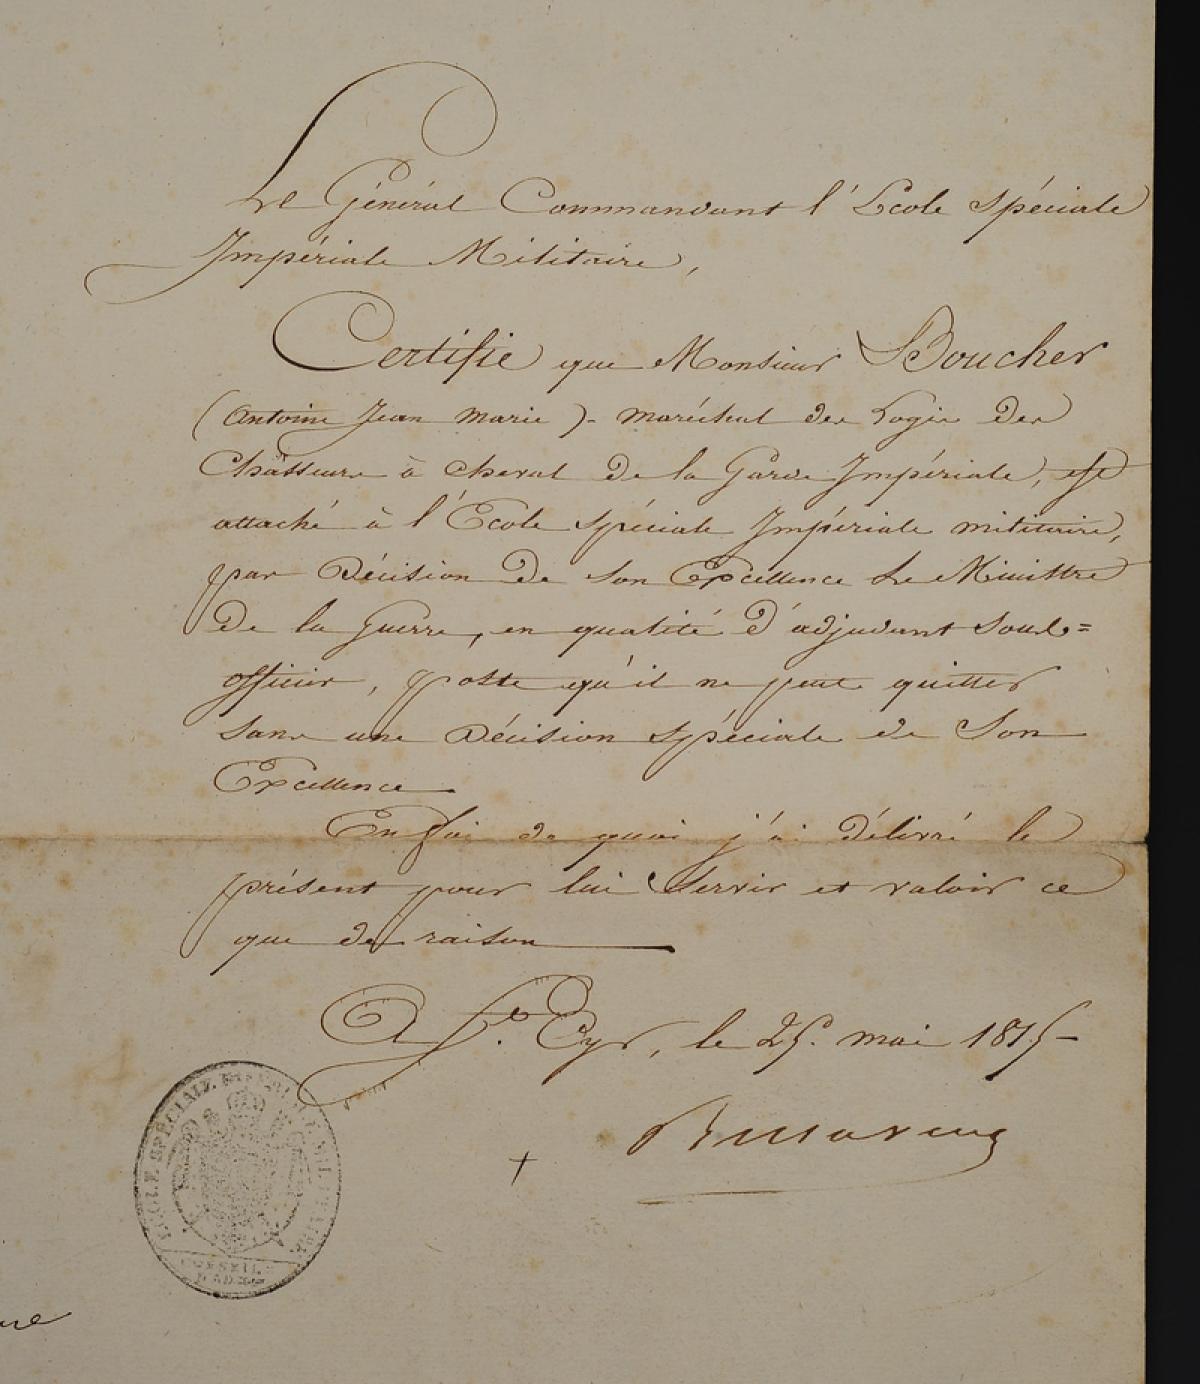 Le Général Commandant l'Ecole Spéciale
Impériale Militaire,
Certifie que Monsieur Boucher
(Antoine Jean Marie) - Maréchal des Logis des
Chasseurs à cheval de la Garde Impériale, est
attaché à l'Ecole Spéciale Impériale militaire,
par Décision de Son Excellence Le Ministre
De la Guerre, en qualité d'adjudant Sous=
officier, poste qu'il ne peut quitter
Sans une Décision Spéciale de Son
Excellence
En foi de quoi j'ai délivré le
présent pour lui Servir et valoir ce
que de raison
A St. Cyr, le 25. mai 1815
ECOLE SPÉCIALE IMPÉRIALE MILITAIRE
CONSEIL
D'ADM